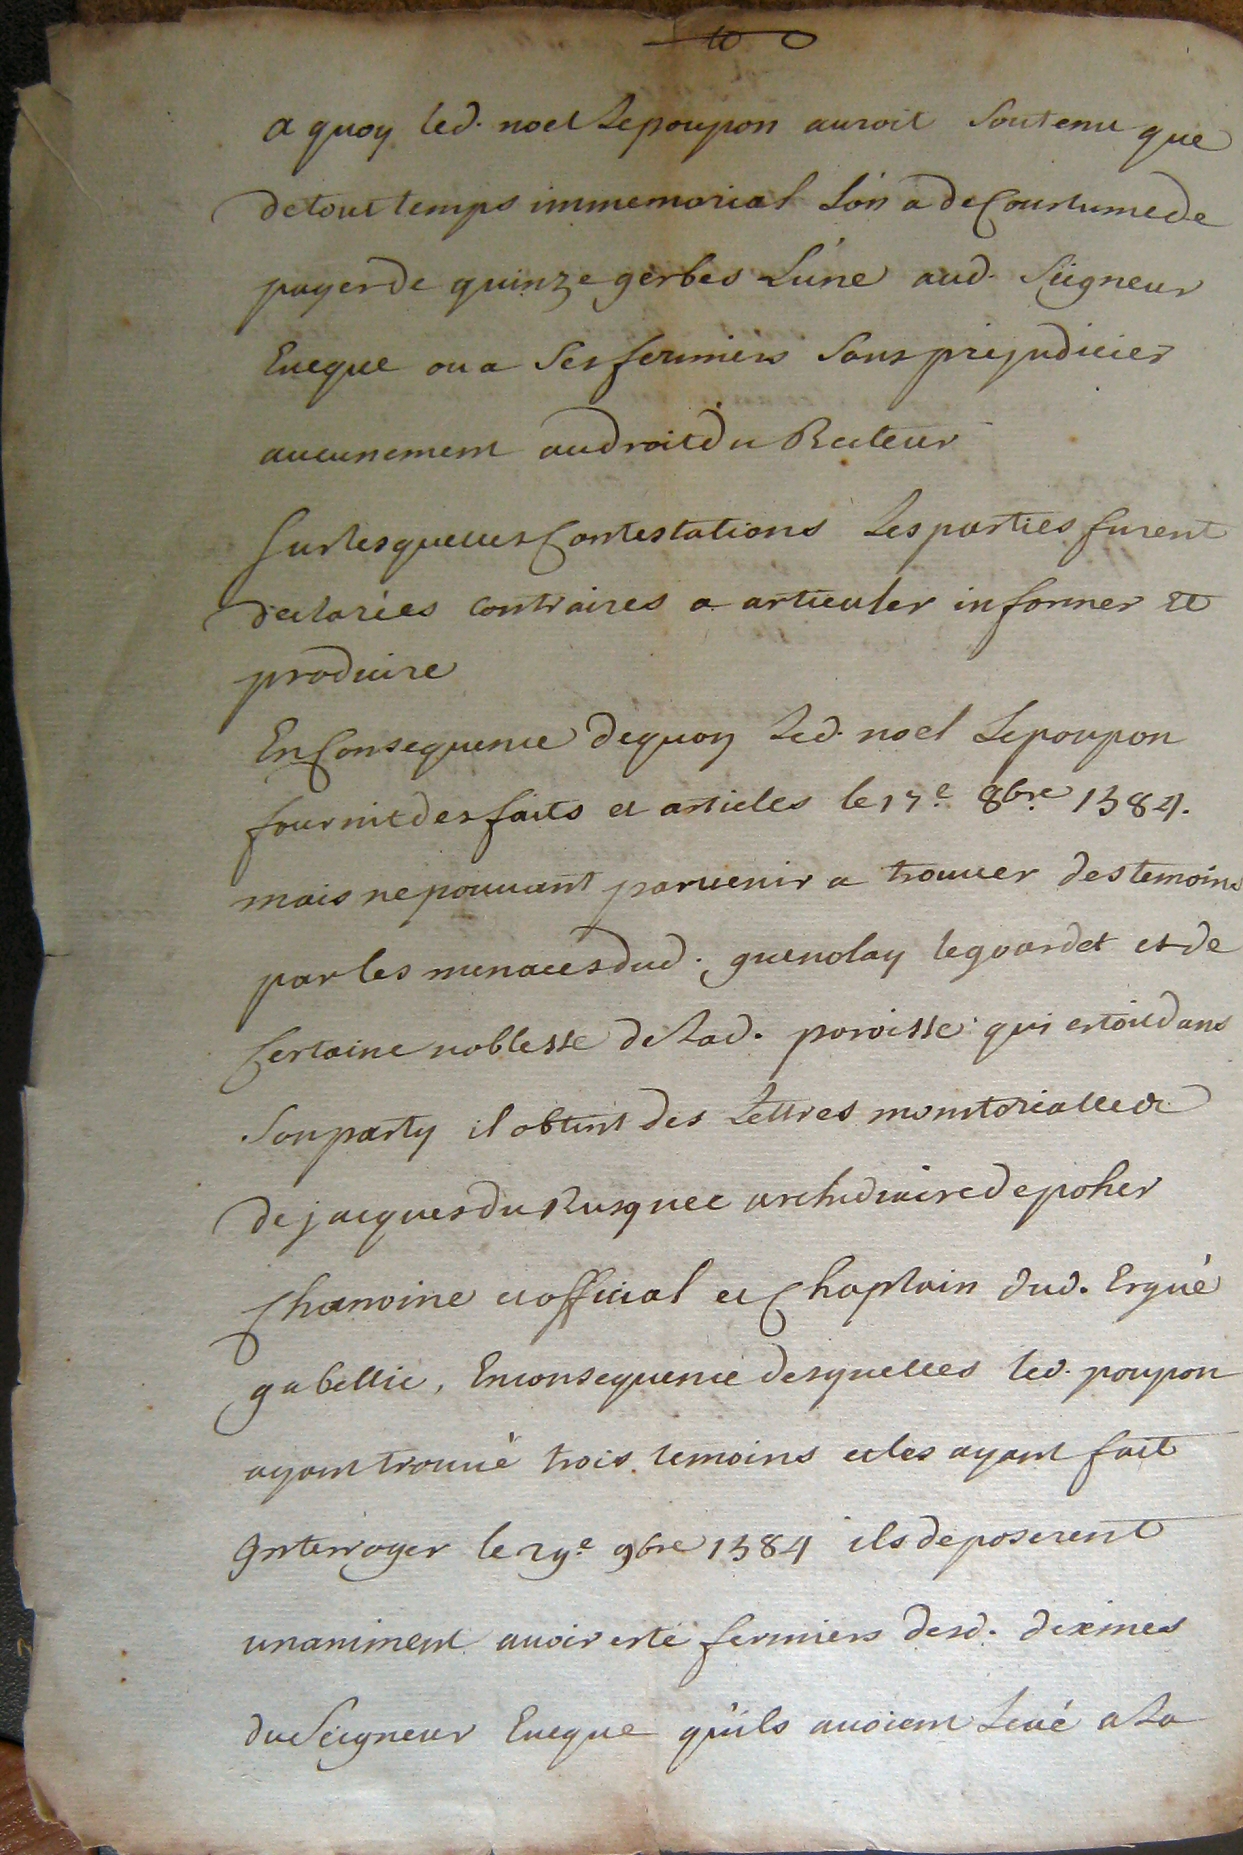 a quoy led. noel Lepoupon auroit Soutenu que
de tout temps immemorial L'on a de Coustume de
payer de quinze gerbes L'une aud. Seigneur
Eveque ou a Ses fermiers Sans prejudicier
aucunement au Droit Du Recteur
Sur lesquelles Contestations Les parties furent
declarées contraires a articuler informer et
produire
En Consequence de quoy Led. noel Lepoupon
fournit des faits et articles le 17e 8bre 1584.
mais ne pouvant parvenir a trouver des temoins
par les menaces dud. guenolay legoardet et de
Certaine noblesse de Lad. paroisse qui estoit dans
Son party il obtint des Lettres monitorialles
de jacques du Rusquec archidiacre de poher
Chanoine et official et Chaplain dud. Ergué
gabellic, En consequence desquelles led. poupon
ayant trouvé trois temoins et les ayant fait
Interroger le 29e 9bre 1584 ils deposerent
unaniment avoir esté fermiers desd. dixmes
du Seigneur Eveque qu'ils avoient Levé a La